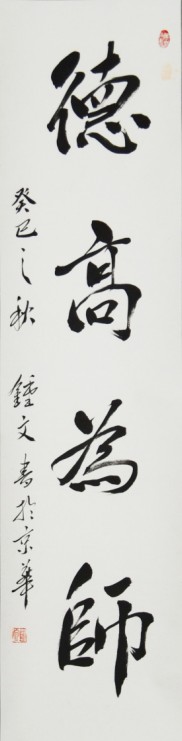 德高為師
癸巳之秋 鍾文書於京華